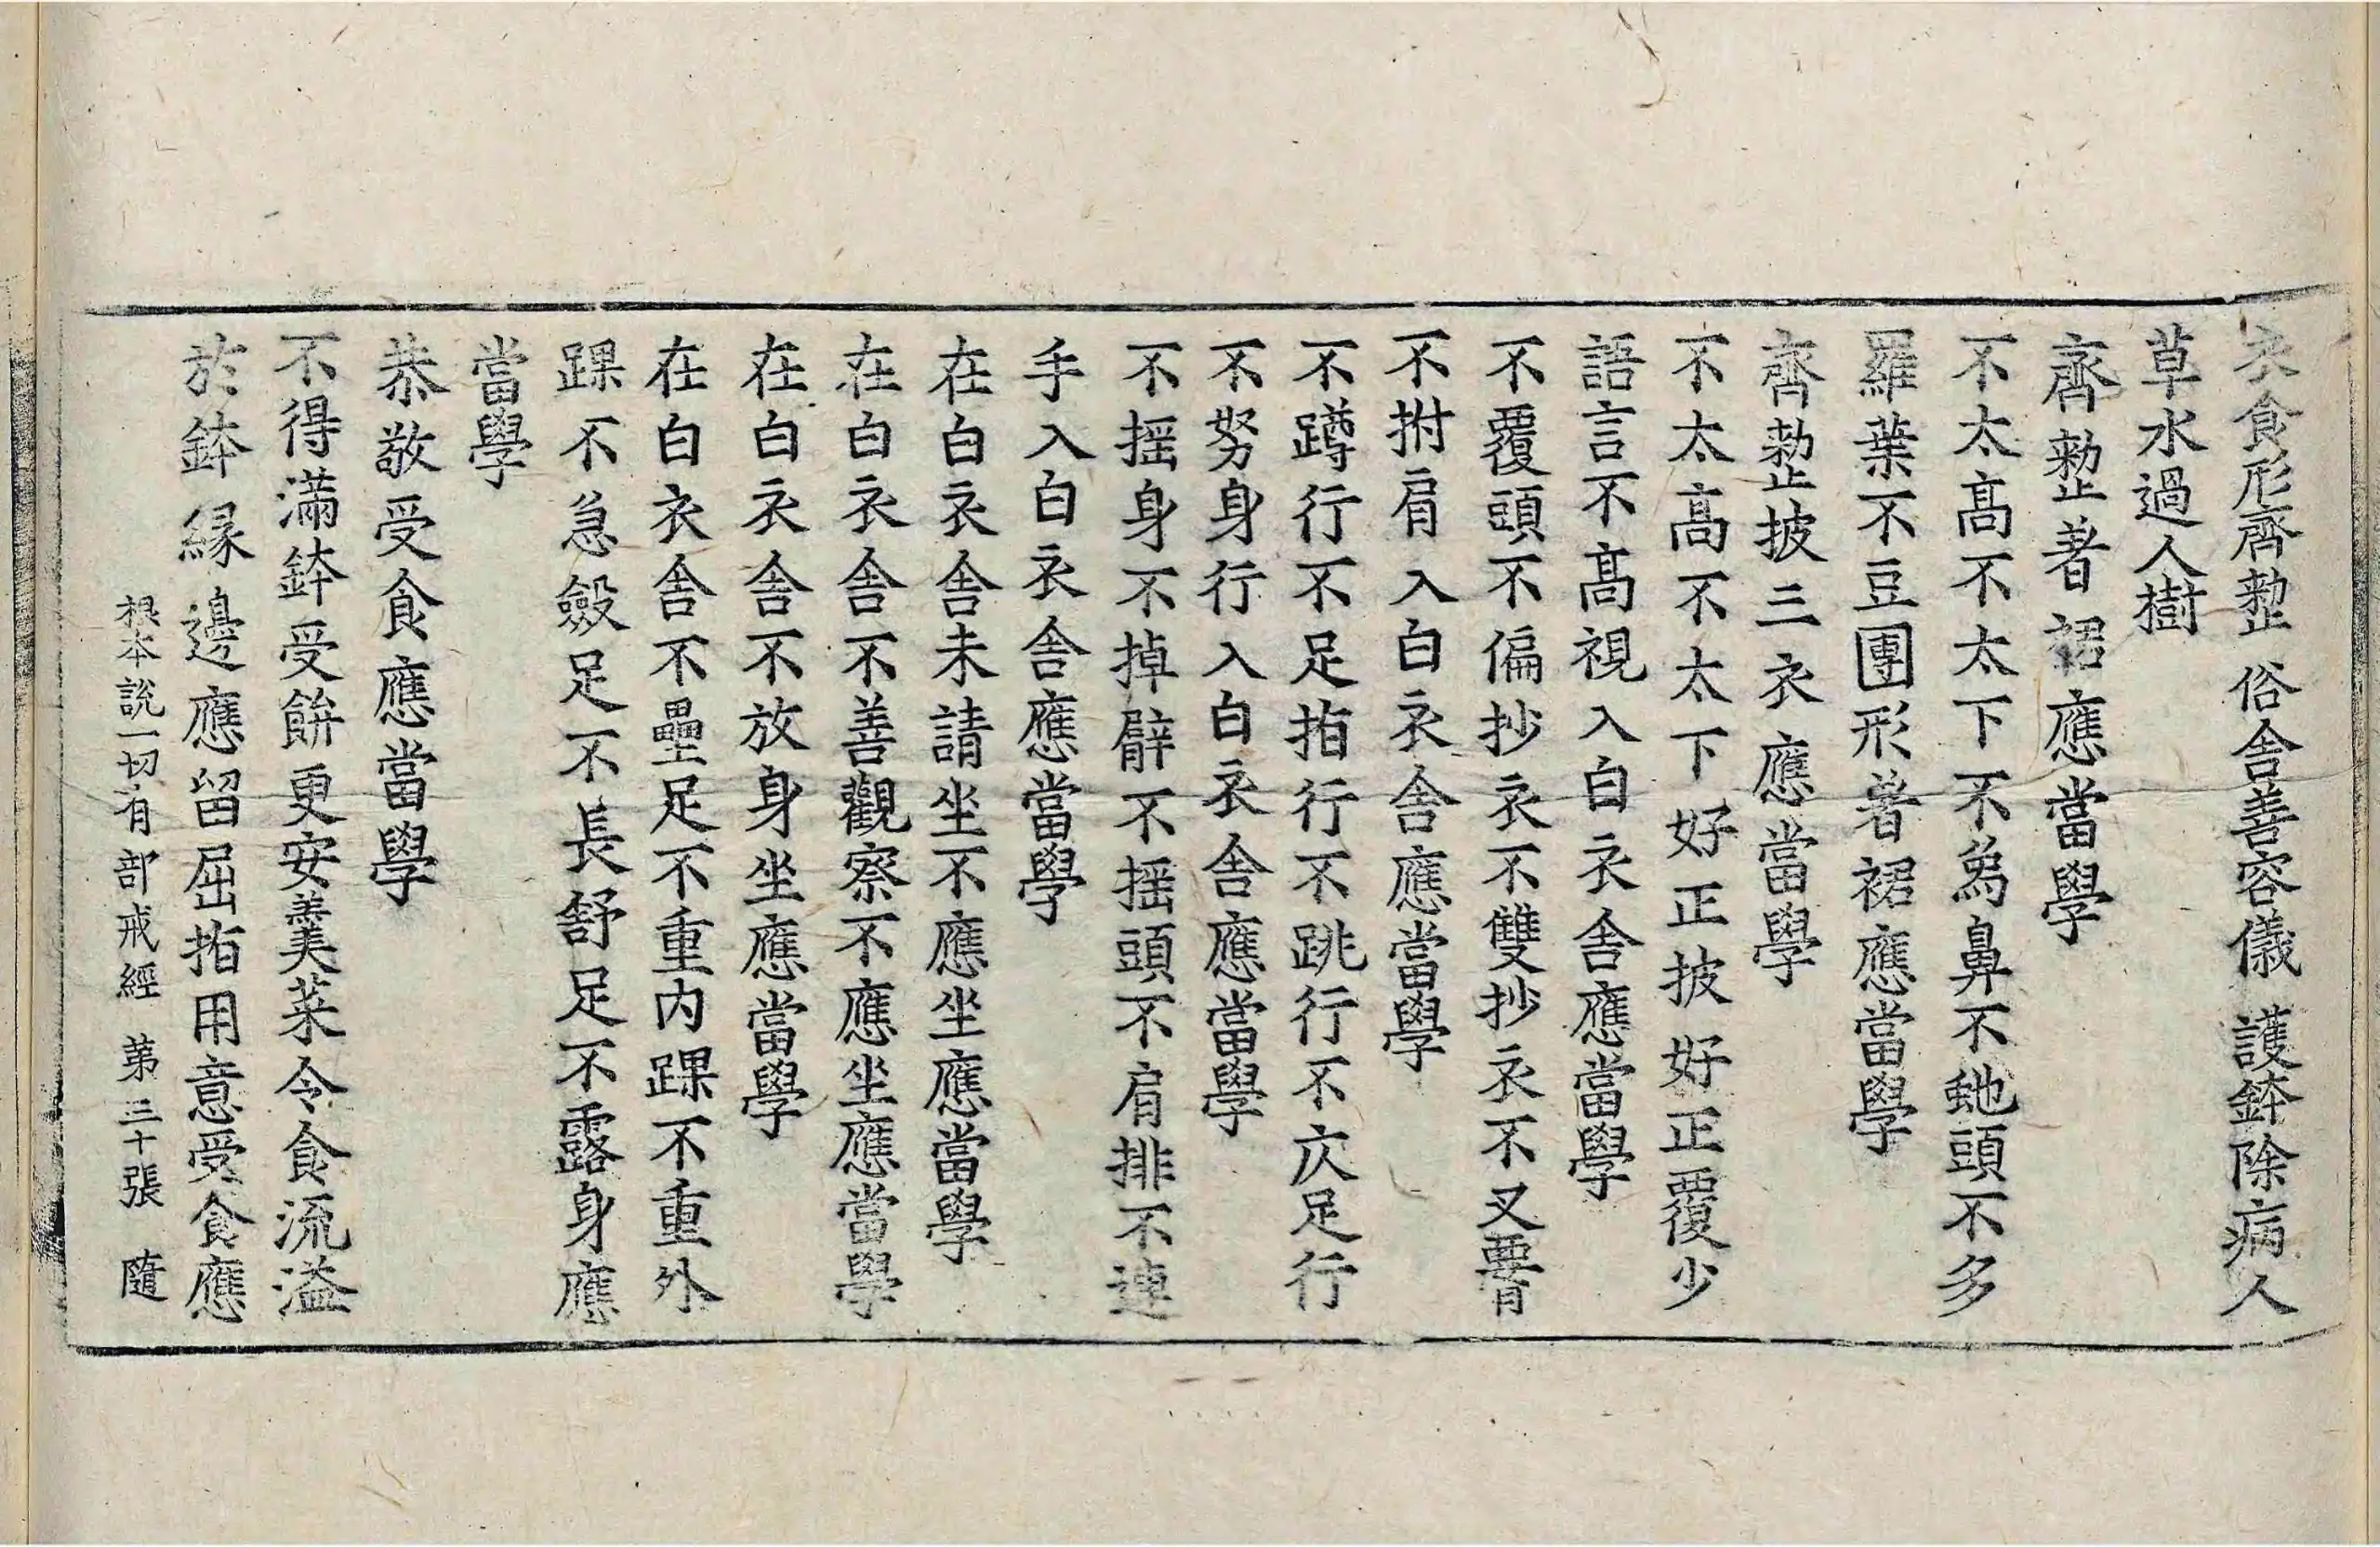 衣食形齊整 俗舍善容儀 護鉢除病人
草水過人樹
齊整著裙應當學
不太髙不太下不爲鼻不虵頭不多
羅葉不豆團形著裙應當學
齊整披三衣應當學
不太髙不太下好正披好正覆少
語言不髙視入白衣舍應當學
不覆頭不偏抄衣不雙抄衣不叉𦝫
不拊肩入白衣舍應當學
不蹲行不足指行不跳行不仄足行
不努身行入白衣舍應當學
不摇身不掉臂不摇頭不肩排不連
手入白衣舍應當學
在白衣舍未請坐不應坐應當學
在白衣舍不善觀察不應坐應當學
在白衣舍不放身坐應當學
在白衣舍不壘足不重内踝不重外
踝不急斂足不長舒足不露身應
當學
恭敬受食應當學
不得滿鉢受餅更安羹菜令食流溢
於鉢縁邊應留屈指用意受食應
根本說一切有部戒經 第三十張 隨